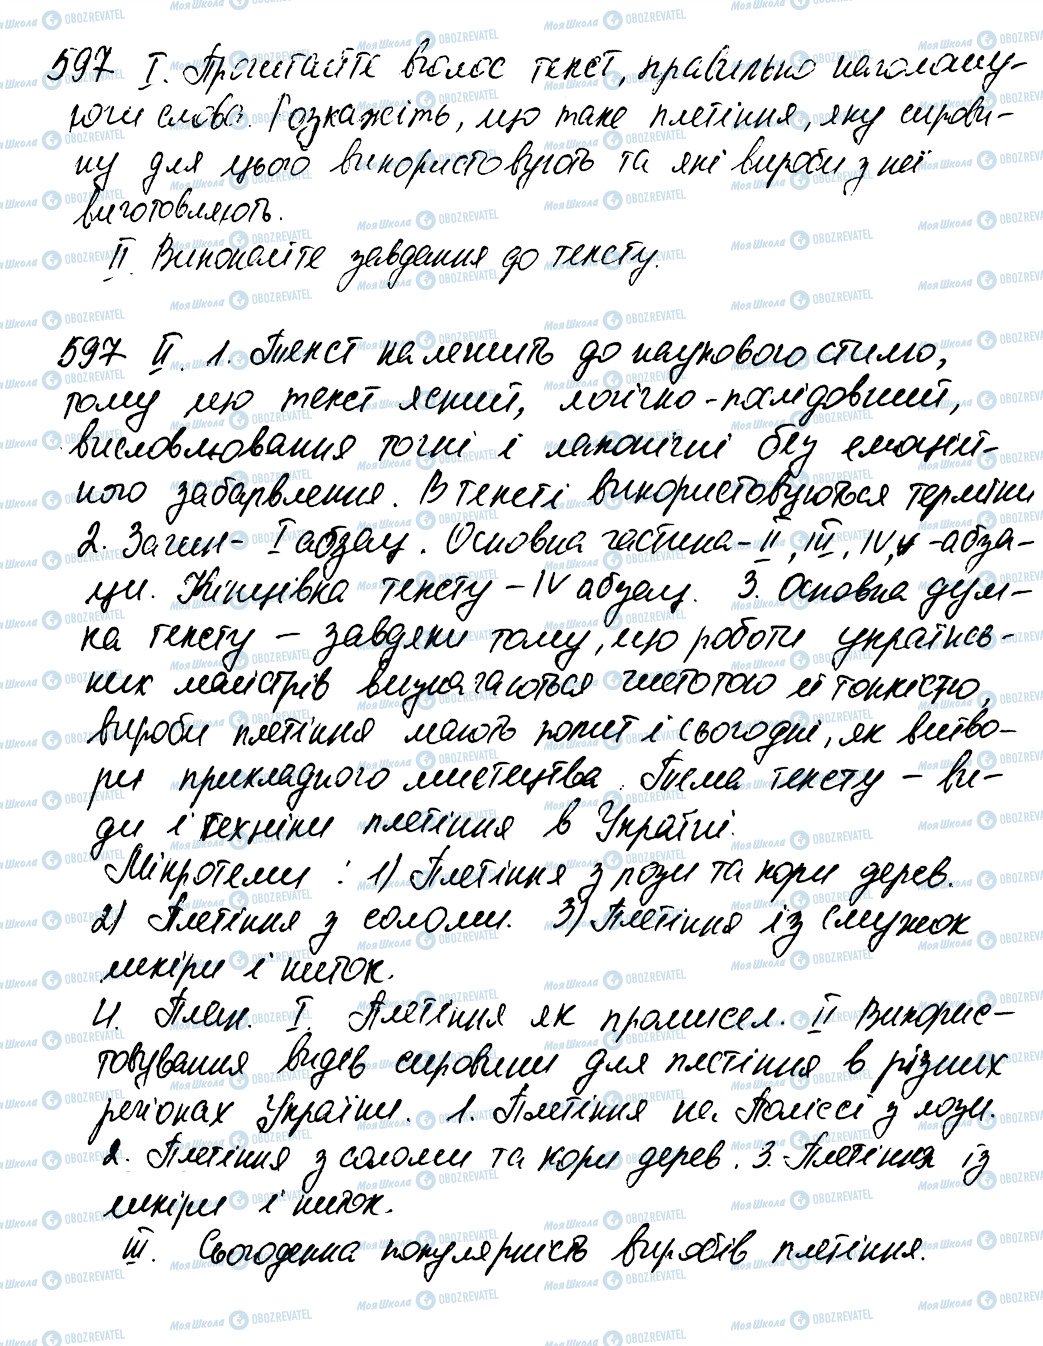 597 I. Прочитайте вголос текст, правильно наголошу-
ючи слова. Розкажіть, що таке плетіння, яку сирови-
ну для цього використовують та які вироби з неї
виготовляють.
II. Виконайте завдання до тексту.
597 II. 1. Текст належить до наукового стилю,
тому що текст ясний, логічно-послідовний,
висловлювання точні і лаконічні без емоцій-
ного забарвлення. В тексті використовуються терміни
2. Зачин - I абзац. Основна частина - II, III, IV, V - абза-
ци. Кінцівка тексту - IV абзац. 3. Основна дум-
ка тексту - завдяки тому, що роботи українсь-
ких майстрів визначаються чистотою й тонкістю,
вироби плетіння мають попит і сьогодні, як витво-
ри прикладного мистецтва. Тема тексту - ви-
ди і техніки плетіння в Україні.
Мікротеми : 1) Плетіння з лози та кори дерев.
2) Плетіння з соломи. 3) Плетіння із смужок
шкіри і ниток.
4. План. I. Плетіння як промисел. II Викорис-
товування видів сировини для плетіння в різних
регіонах України. 1. Плетіння на Поліссі з лози.
2. Плетіння з соломи та кори дерев. 3. Плетіння із
шкіри і ниток.
III. Сьогоденна популярність виробів плетіння.